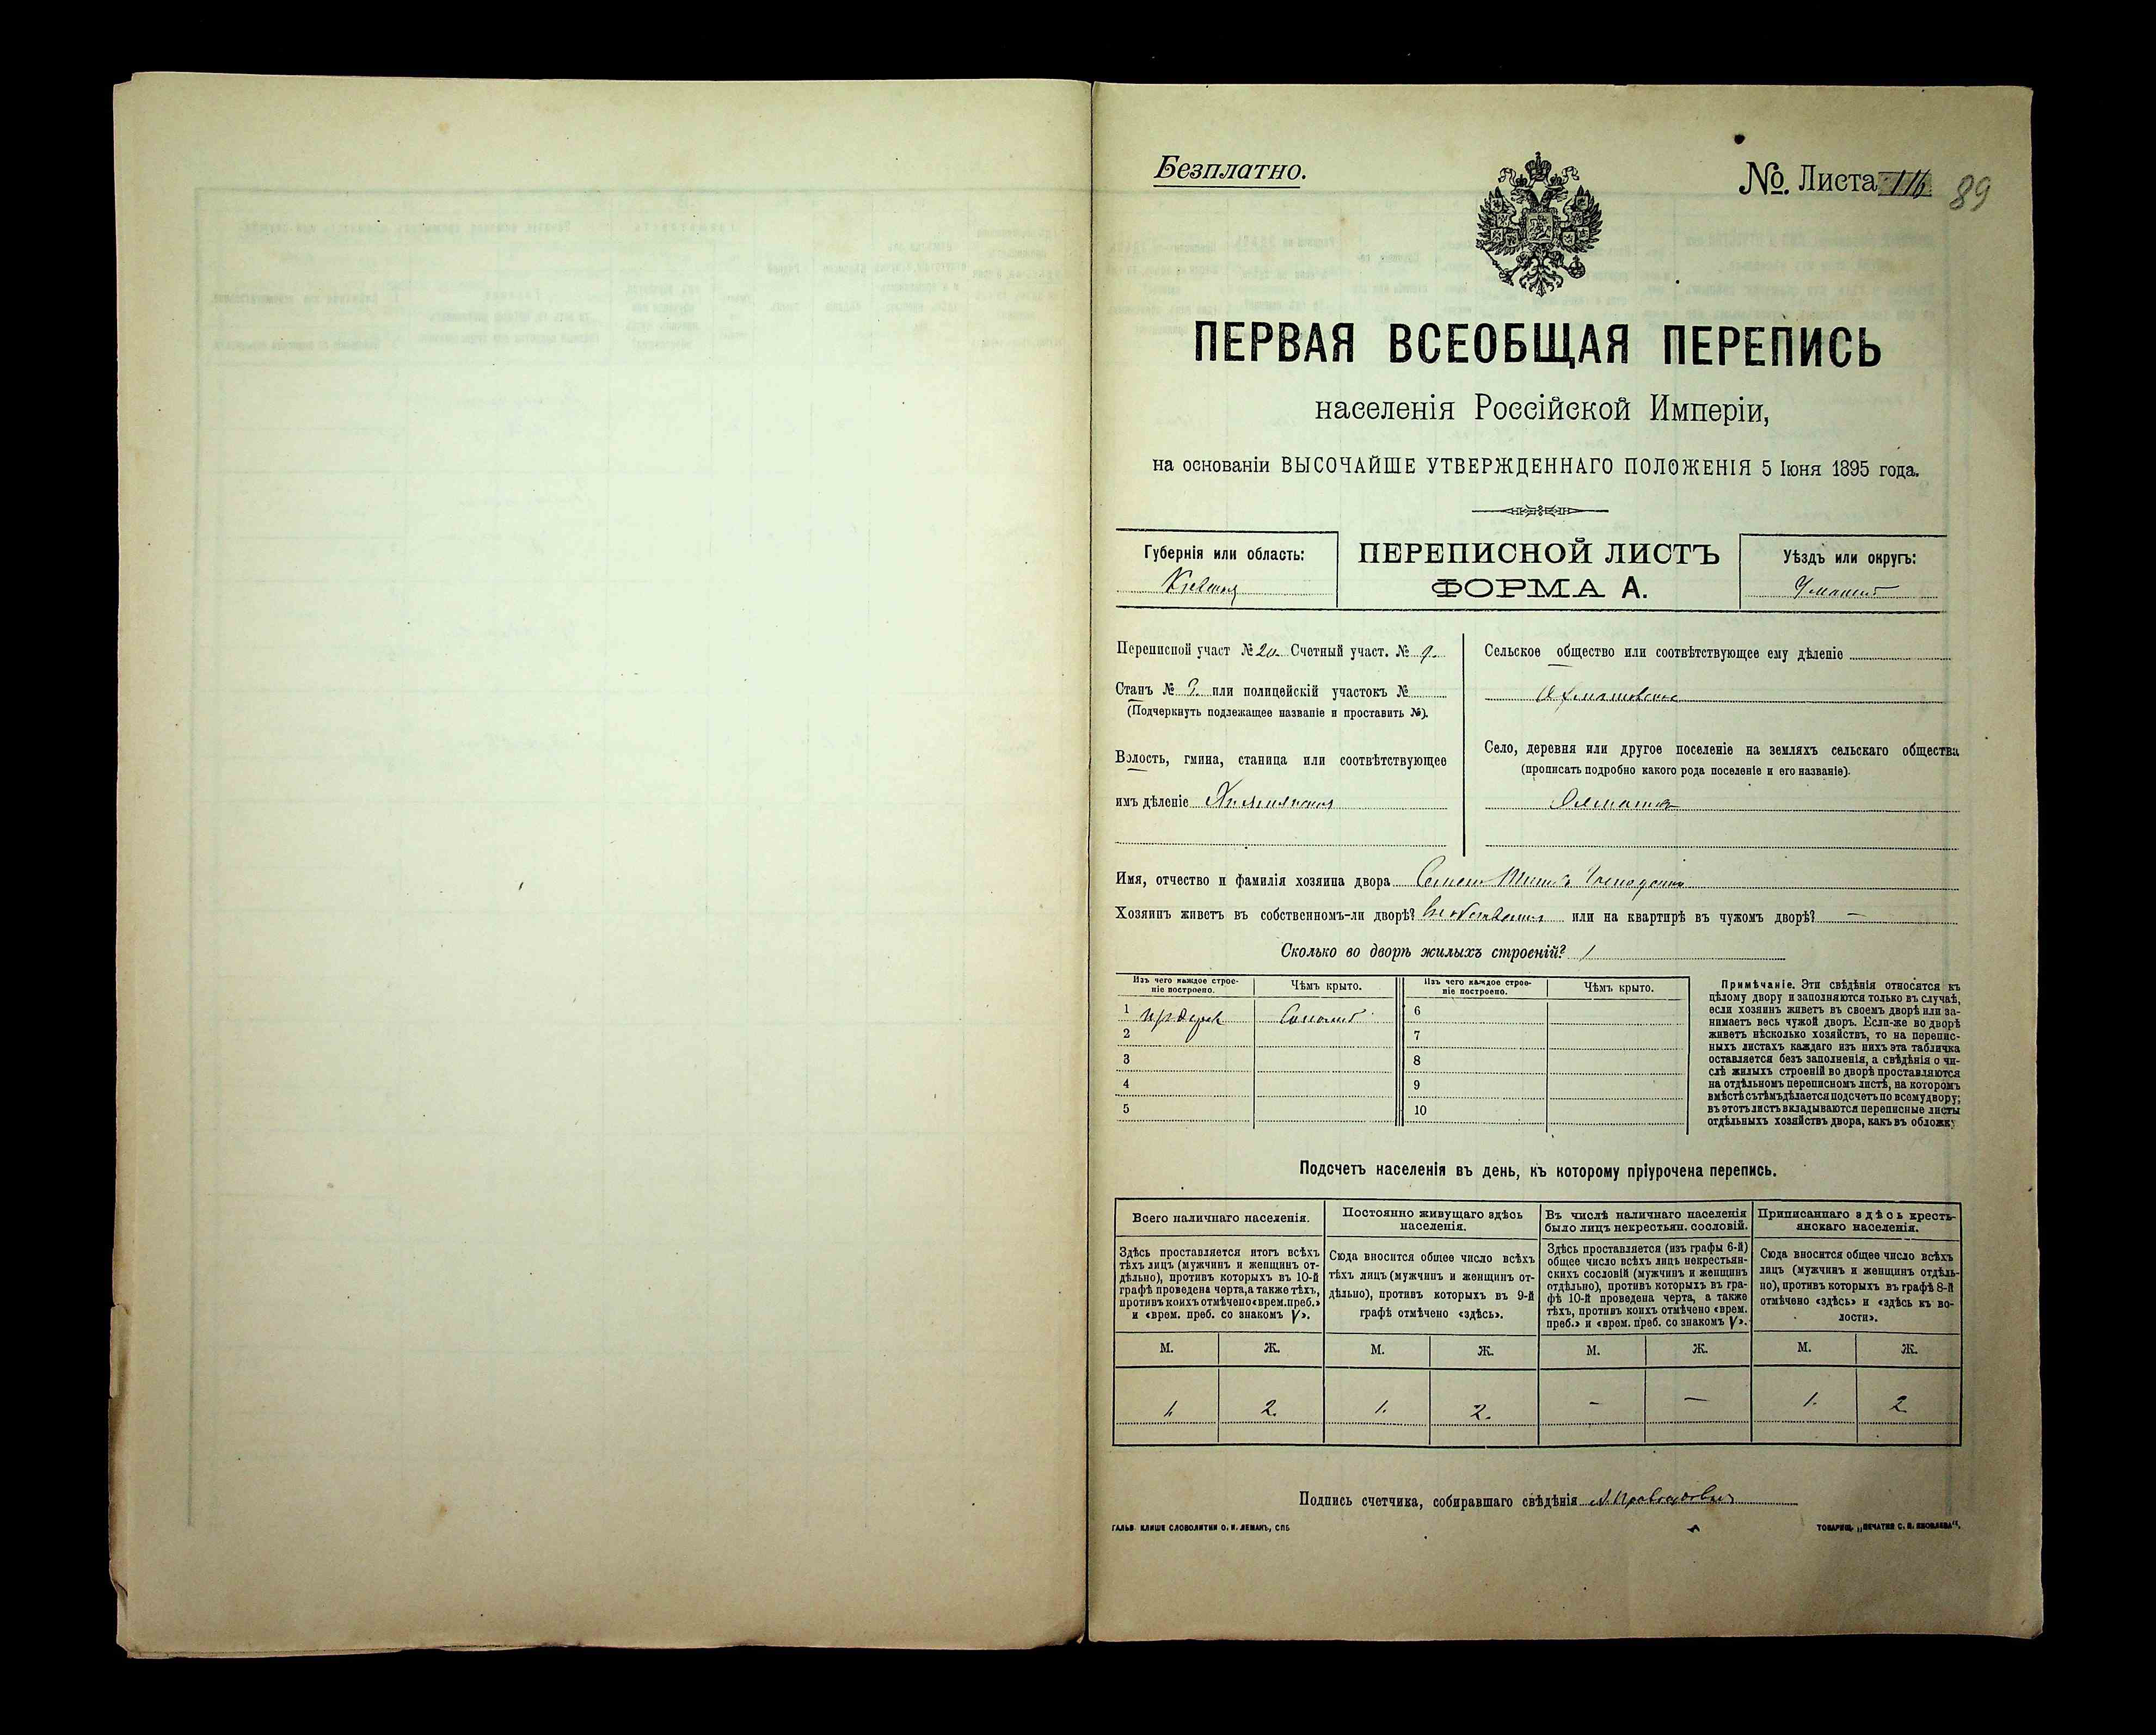 Безплатно.
№. Листа 116 89
ПЕРВАЯ ВСЕОБЩАЯ ПЕРЕПИСЬ
населенія Россійской Имперіи,
на основаніи ВЫСОЧАЙШЕ УТВЕРЖДЕННАГО ПОЛОЖЕНІЯ 5 Іюня 1895 года.
Губернія или область:
Кіевская
ПЕРЕПИСНОЙ ЛИСТЪ
ФОРМА А.
Уѣздъ или округъ:
Уманскій
Переписной участ № 20 Счетный участ. № 9.
Станъ № 3. или полицейскій участокъ №
(Подчеркнуть подлежащее названіе и проставить №).
Волость, гмина, станица или соотвѣтствующее
имъ дѣленіе
Сельское общество или соотвѣтствующее ему дѣленіе
Село, деревня или другое поселеніе на земляхъ сельскаго общества
(прописать подробно какого рода поселеніе и его названіе).
Имя, отчество и фамилія хозяина двора
Хозяинъ живетъ въ собственномъ-ли дворѣ? или на квартирѣ въ чужомъ дворѣ? —
Сколько во дворѣ жилыхъ строеній? 1
Изъ чего каждое строе-
ніе построено.
Чѣмъ крыто.
Изъ чего каждое строе-
ніе построено.
Чѣмъ крыто.
1 Соломой 6
2 7
3 8
4 9
5 10
Примѣчаніе. Эти свѣдѣнія относятся къ
цѣлому двору и заполняются только въ случаѣ,
если хозяинъ живетъ въ своемъ дворѣ или за-
нимаетъ весь чужой дворъ. Если-же во дворѣ
живетъ нѣсколько хозяйствъ, то на перепис-
ныхъ листахъ каждаго изъ нихъ эта табличка
оставляется безъ заполненія, а свѣдѣнія о чи-
слѣ жилыхъ строеній во дворѣ проставляются
на отдѣльномъ переписномъ листѣ, на которомъ
вмѣстѣ съ тѣмъ дѣлается подсчетъ по всему двору;
въ этотъ листъ вкладываются переписные листы
отдѣльныхъ хозяйствъ двора, какъ въ обложку
Подсчетъ населенія въ день, къ которому пріурочена перепись.
Всего наличнаго населенія.
Здѣсь проставляется итогъ всѣхъ
тѣхъ лицъ (мужчинъ и женщинъ от-
дѣльно), противъ которыхъ въ 10-й
графѣ проведена черта, а также тѣхъ,
противъ коихъ отмѣчено «врем. преб.»
и «врем. преб. со знакомъ V».
Постоянно живущаго здѣсь
населенія.
Сюда вносится общее число всѣхъ
тѣхъ лицъ (мужчинъ и женщинъ от-
дѣльно), противъ которыхъ въ 9-й
графѣ отмѣчено «здѣсь».
Въ числѣ наличнаго населенія
было лицъ некрестьян. сословій.
Здѣсь проставляется (изъ графы 6-й)
общее число всѣхъ лицъ некрестьян-
скихъ сословій (мужчинъ и женщинъ
отдѣльно), противъ которыхъ въ гра-
фѣ 10-й проведена черта, а также
тѣхъ, противъ коихъ отмѣчено «врем.
преб.» и «врем. преб. со знакомъ V».
Приписаннаго здѣсь кресть-
янскаго населенія.
Сюда вносится общее число всѣхъ
лицъ (мужчинъ и женщинъ отдѣль-
но), противъ которыхъ въ графѣ 8-й
отмѣчено «здѣсь» и «здѣсь къ во-
лости».
М. Ж. М. Ж. М. Ж. М. Ж.
1. 2. 1. 2. — — 1. 2
Подпись счетчика, собиравшаго свѣдѣнія
ГАЛЬВ. КЛИШЕ СЛОВОЛИТНИ О. И. ЛЕМАНЪ, СПБ
ТОВАРИЩ. „ПЕЧАТНЯ С. П. ЯКОВЛЕВА“.